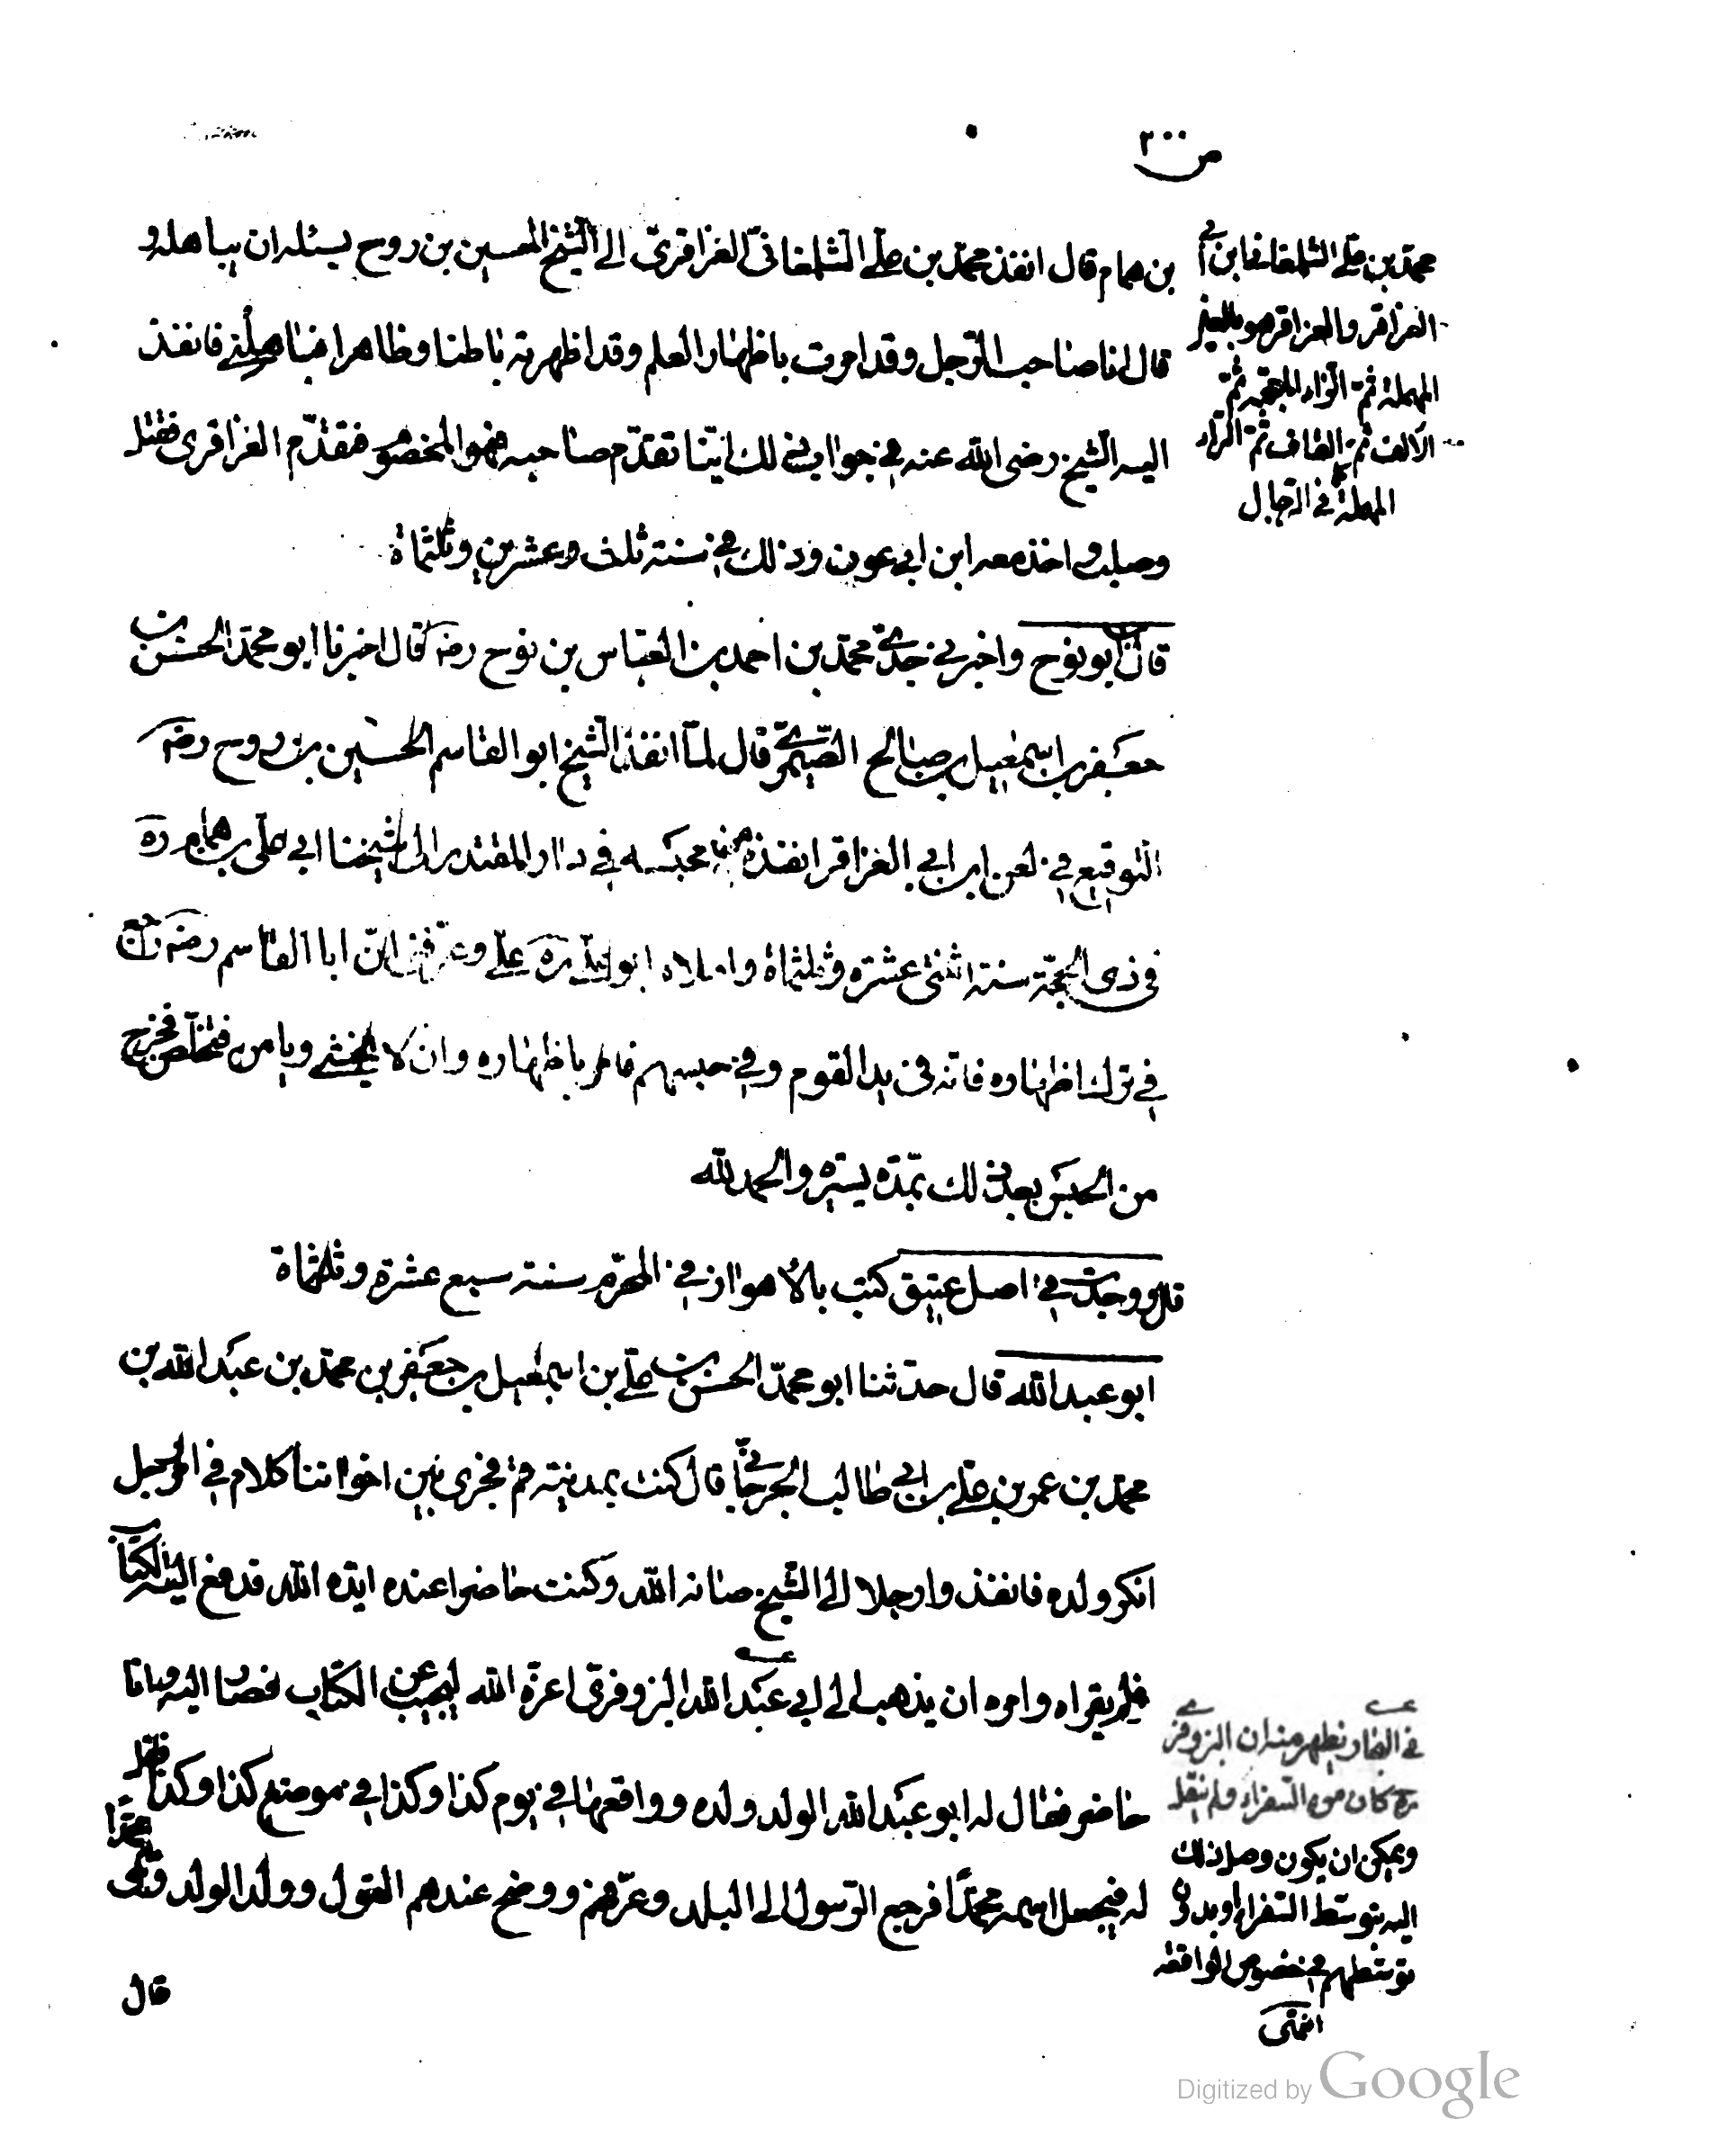 ص ٣٠٠
بن همام قال انفذ محمد بن علي الشلمغاني العزاقري الى الشيخ الحسين بن روح يسئله ان يباهله و
قال انا صاحب الرجل وقد امرت باظهار العلم وقد اظهرته باطنا وظاهرا فباهلني فانفذ
اليه الشيخ رضى الله عنه في جواب ذلك اينا تقدم صاحبه فهو المخصوم فتقدم العزاقرى فقتل
وصلب واخذ معه ابن ابي عون وذلك في سنة ثلث وعشرين وثلثمائة
قال ابن نوح واخبرني جدي محمد بن احمد بن العباس بن نوح رضه قال اخبرنا ابو محمد الحسن بن
جعفر بن اسمعيل بن صالح الصيمري قال لما انفذ الشيخ ابو القاسم الحسين بن روح رضه
التوقيع في لعن ابن ابي العزاقر انفذه من محبسه في دار المقتدر الى شيخنا ابي علي بن همام ره
في ذى الحجة سنة اثنتي عشرة وثلثمائة واملاه ابو علي ره علي وعرفني ان ابا القاسم رضه راجع
في ترك اظهاره فانه في يد القوم وفي حبسهم فامر باظهاره وان لا يخشى ويامن فتخلص فخرج
من الحبس بعد ذلك بمدة يسيرة والحمد لله
قال ووجدت في اصل عتيق كتب بالاهواز في المحرم سنة سبع عشرة وثلثمائة
ابو عبد الله قال حدثنا ابو محمد الحسن بن علي بن اسمعيل بن جعفر بن محمد بن عبد الله بن
محمد بن عمر بن علي بن ابي طالب الجرجاني قال كنت بمدينة قم فجرى بين اخواننا كلام في امر رجل
انكر ولده فانفذوا رجلا الى الشيخ صانه الله وكنت حاضرا عنده ايده الله فدفع اليه الكتاب
فلم يقراه وامره ان يذهب الى ابي عبد الله البزوفرى اعزه الله ليجيب عن الكتاب فصار اليه وانا
حاضر فقال له ابو عبد الله الولد ولده وواقعها في يوم كذا وكذا في موضع كذا وكذا فقل
له فيجعل اسمه محمدا فرجع الرسول الى البلد وعرفهم ووضح عندهم القول وولد الولد وسمى محمدا
قال
محمد بن علي الشلمغاني ابن أبي
العزاقر والعزاقر هو بالعين
المهملة ثم الزاء المعجمة ثم
الالف ثم القاف ثم الراء
المهملة في الرجال
في البحار يظهر منه ان البزوفري
ره كان من السفراء ولم ينقل
ويمكن ان يكون وصل ذلك
اليه بتوسط السفراء او بدون
توسطهم في خصوص الواقعة
انتهى
Digitized by Google